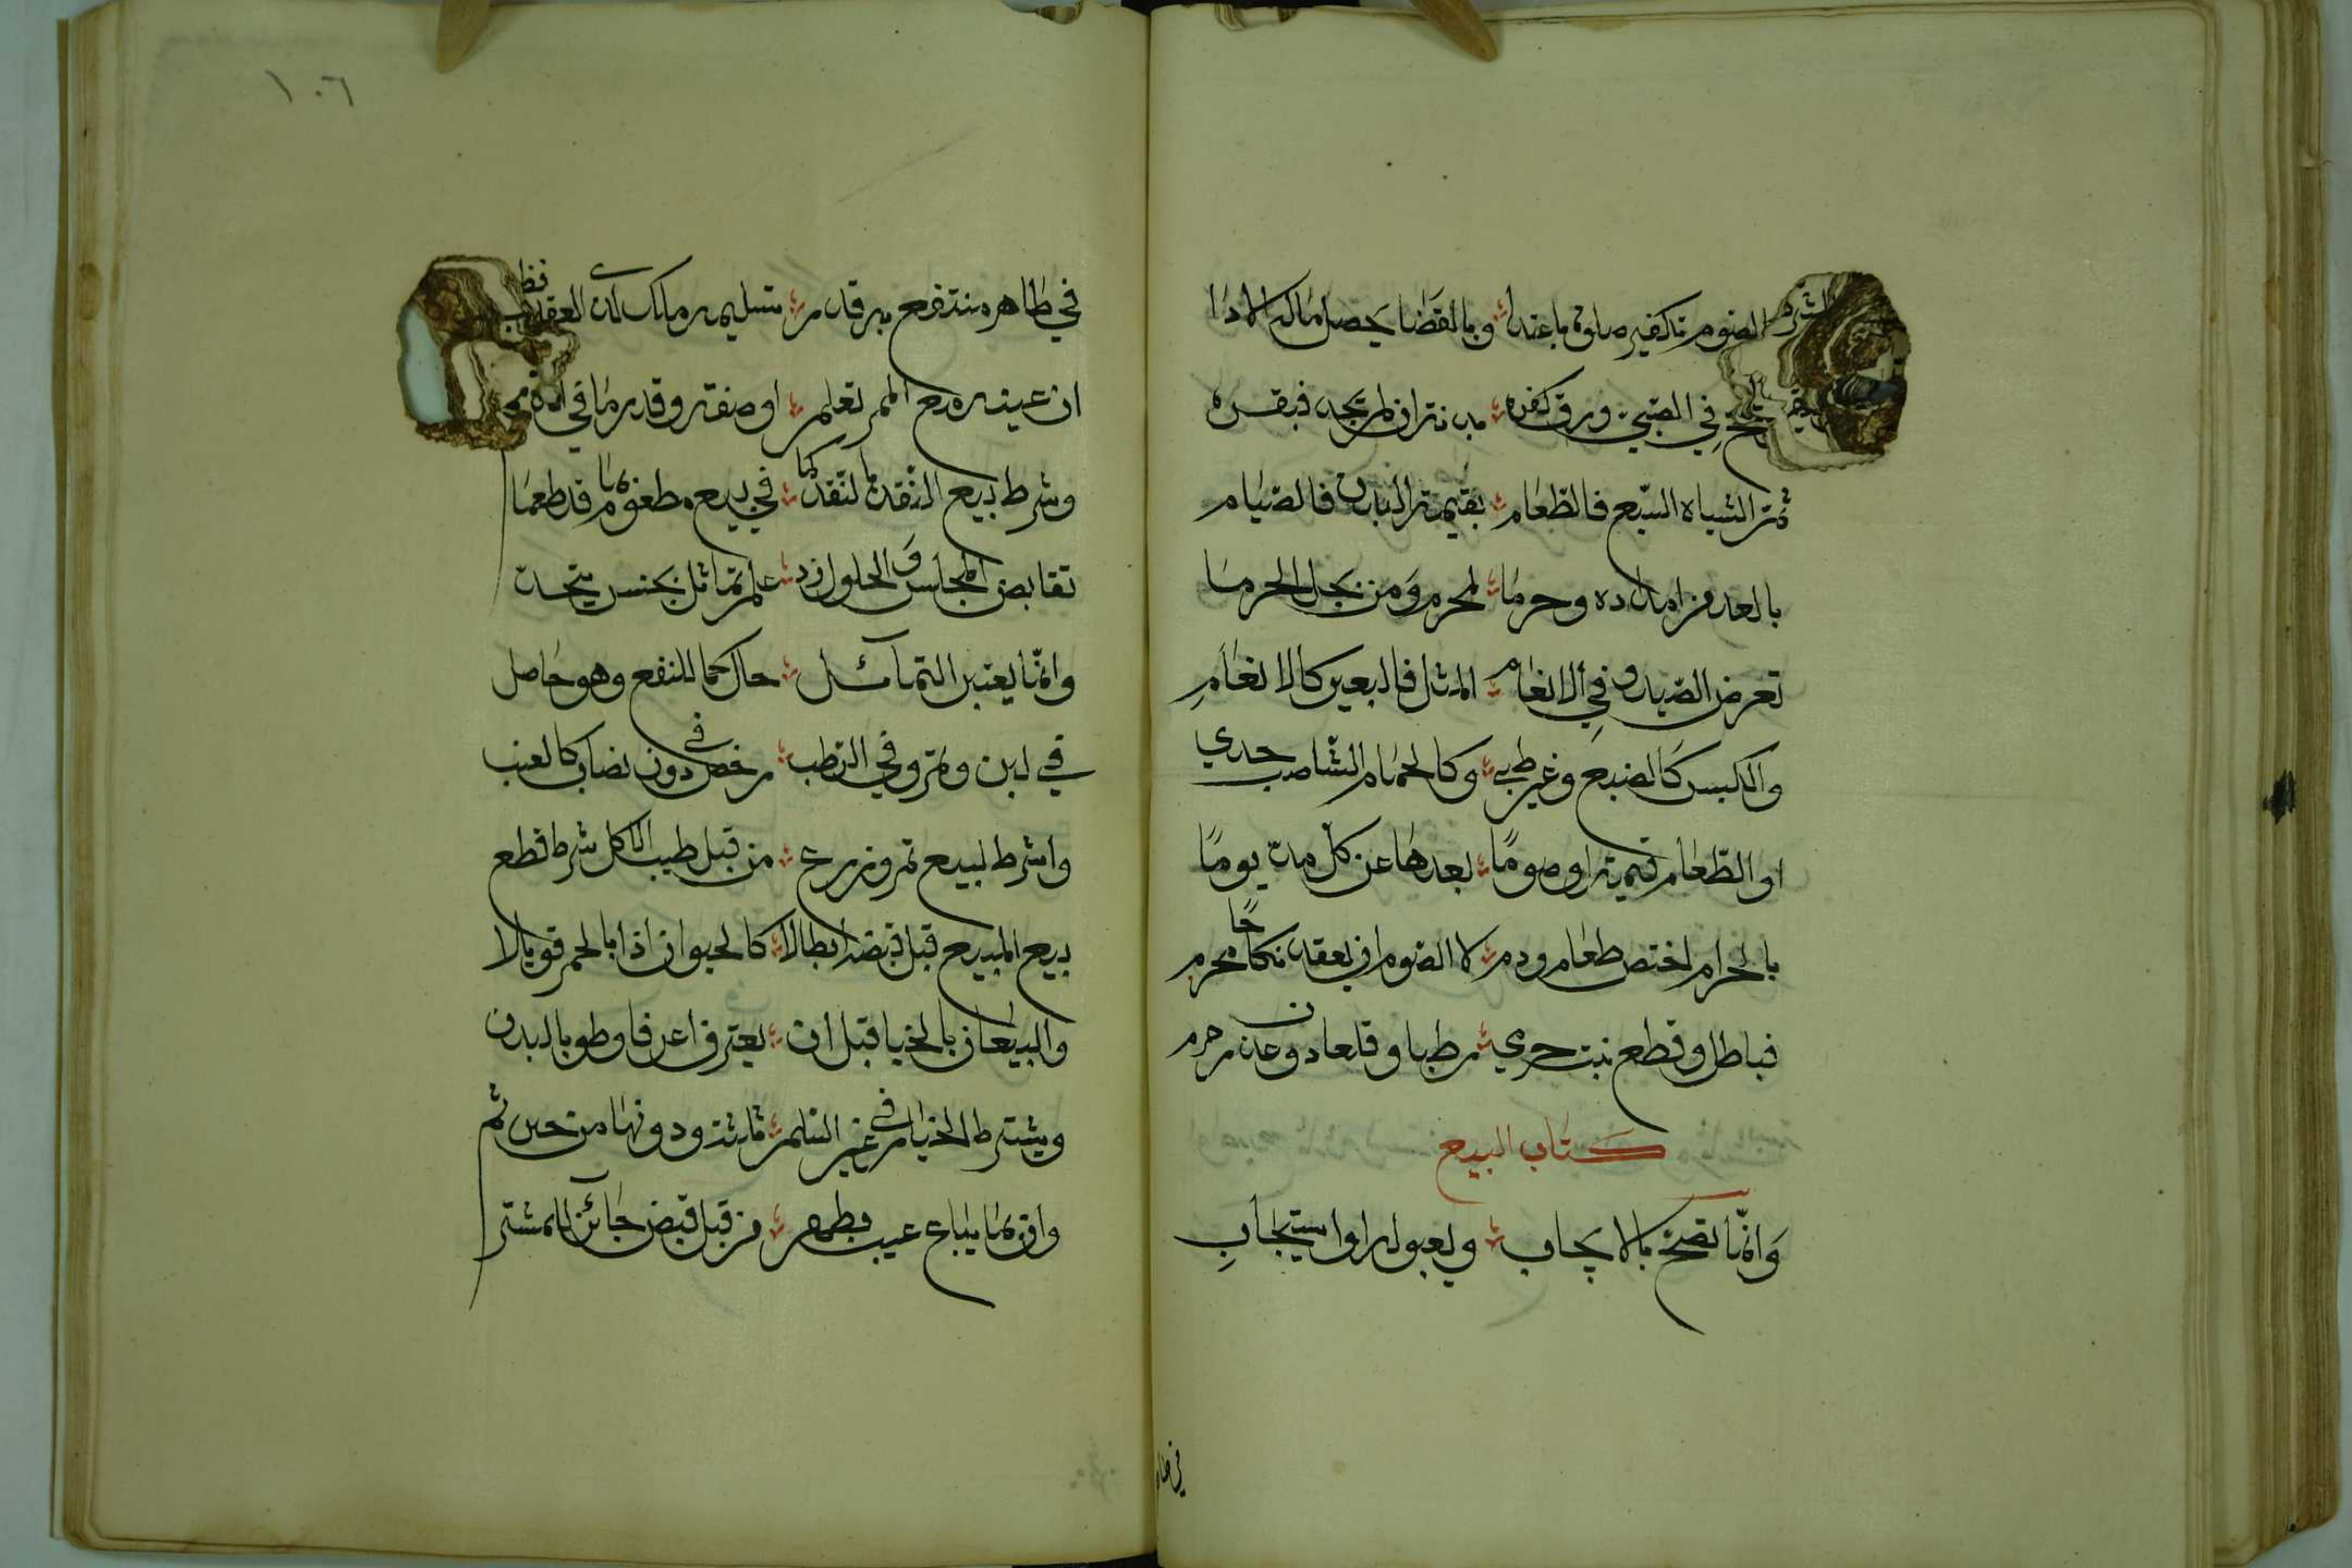 الصوم تكفير صلوة باعتدا وبالقضا يحصل ماله الادا
في الصبي ورق كفره بدنة ان لم يجد فبقره
ثم الشياه السبع فالطعام بقيمة البدن فالصيام
بالعد من امداده وحرما لمحرم ومن بحل الحرما
تعرض الصيد وفي الانعام المثل فالبعير كالانعام
والكبس كالضبع وغير ظبي وكالحمام الشاة جدي
او الطعام قيمة او صوما بعدها عن كل مد يوما
بالحرام اختص طعام ودم لا الصوم ان يعقد نكاحا محرم
فباطل وقطع نبت حرمي رطبا وقلعا دون عذر حرم
كتاب البيع
وانما تصح بالايجاب وبقبوله او استيجاب
في طا
١٠٦
في طاهر منتفع به قدر تسليمه ملك لذي العقد نظر
ان عينه مع الممر تعلم او صفة وقدر ما في الذمم
وشرط بيع النقد بالنقد كما في بيع مطعوم بما قد طعما
تقابض المجلس والحلول زد علم تماثل بجنس يتحد
وانما يعتبر التماثل حال كمال النفع وهو حاصل
في لبن وتمر وفي الرطب رخص في دون نصاب كالعنب
واشرط لبيع ثمر وزرع من قبل طيب الاكل شرط قطع
بيع المبيع قبل قبض ابطلا كالحيوان اذ بالحم قوبلا
والبيعان بالخيار قبل ان يفترقا عرفا وطوعا بالبدن
ويشترط الخيار في غير السلم ثلاثة ودونها من حين تم
وان بما يباع عيب يظهر من قبل قبض جائز للمشتر